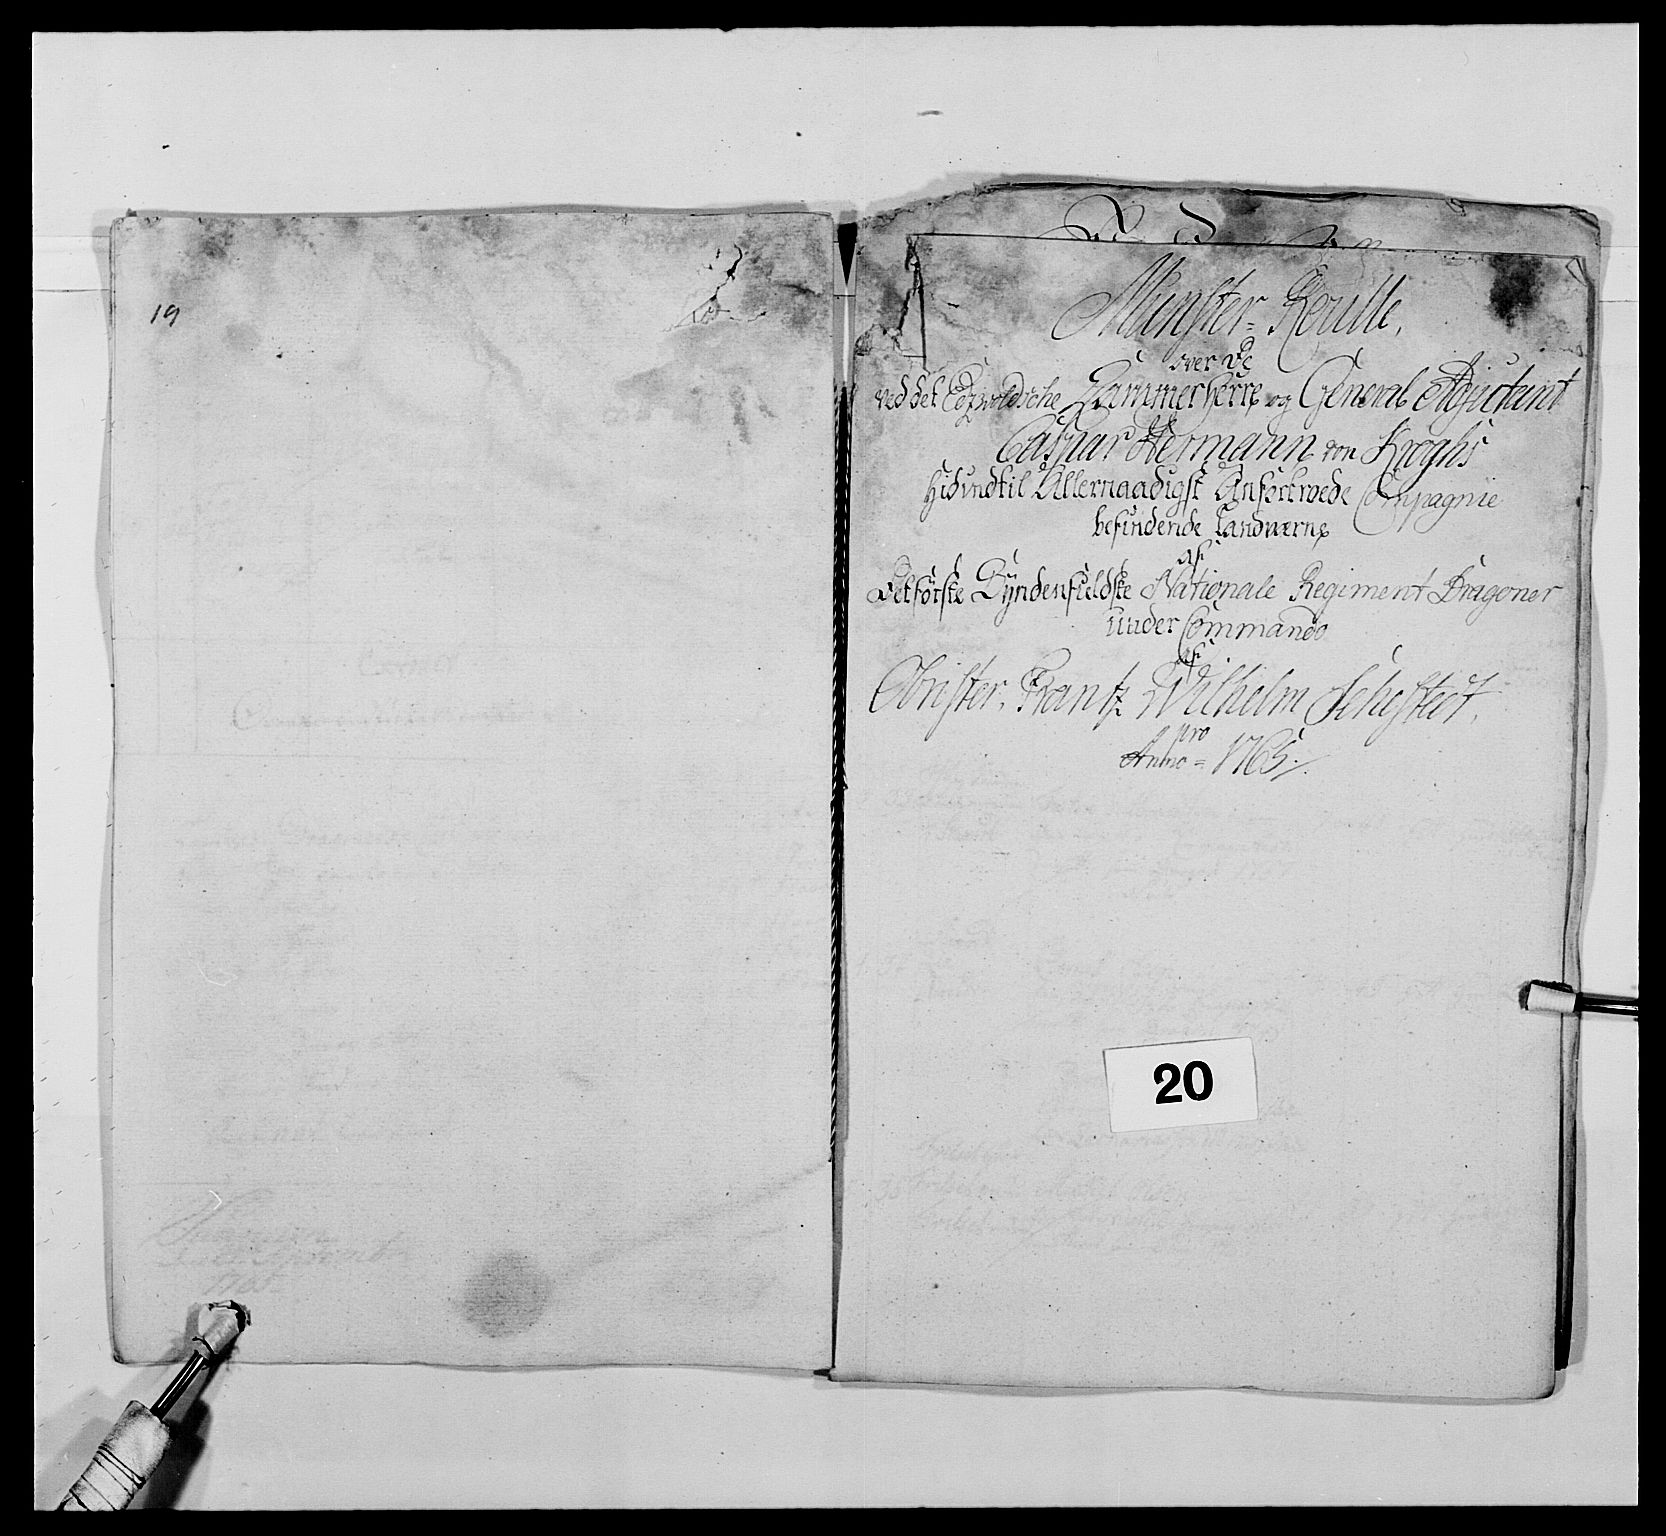 19
Munster-Roulle,
over De
ved det Edzvoldsche Kammerherre og General Adjutant
Caspar Hermann von Kroghs
hidindtil Allernaadigst Anfortroede Compagnie
befindende Landværne
af
Det første Syndenfieldske Nationale Regiment Dragoner
under Commando
af
Obrister, Frantz Wilhelm Sehestedt,
pro
Anno = 1765.
20